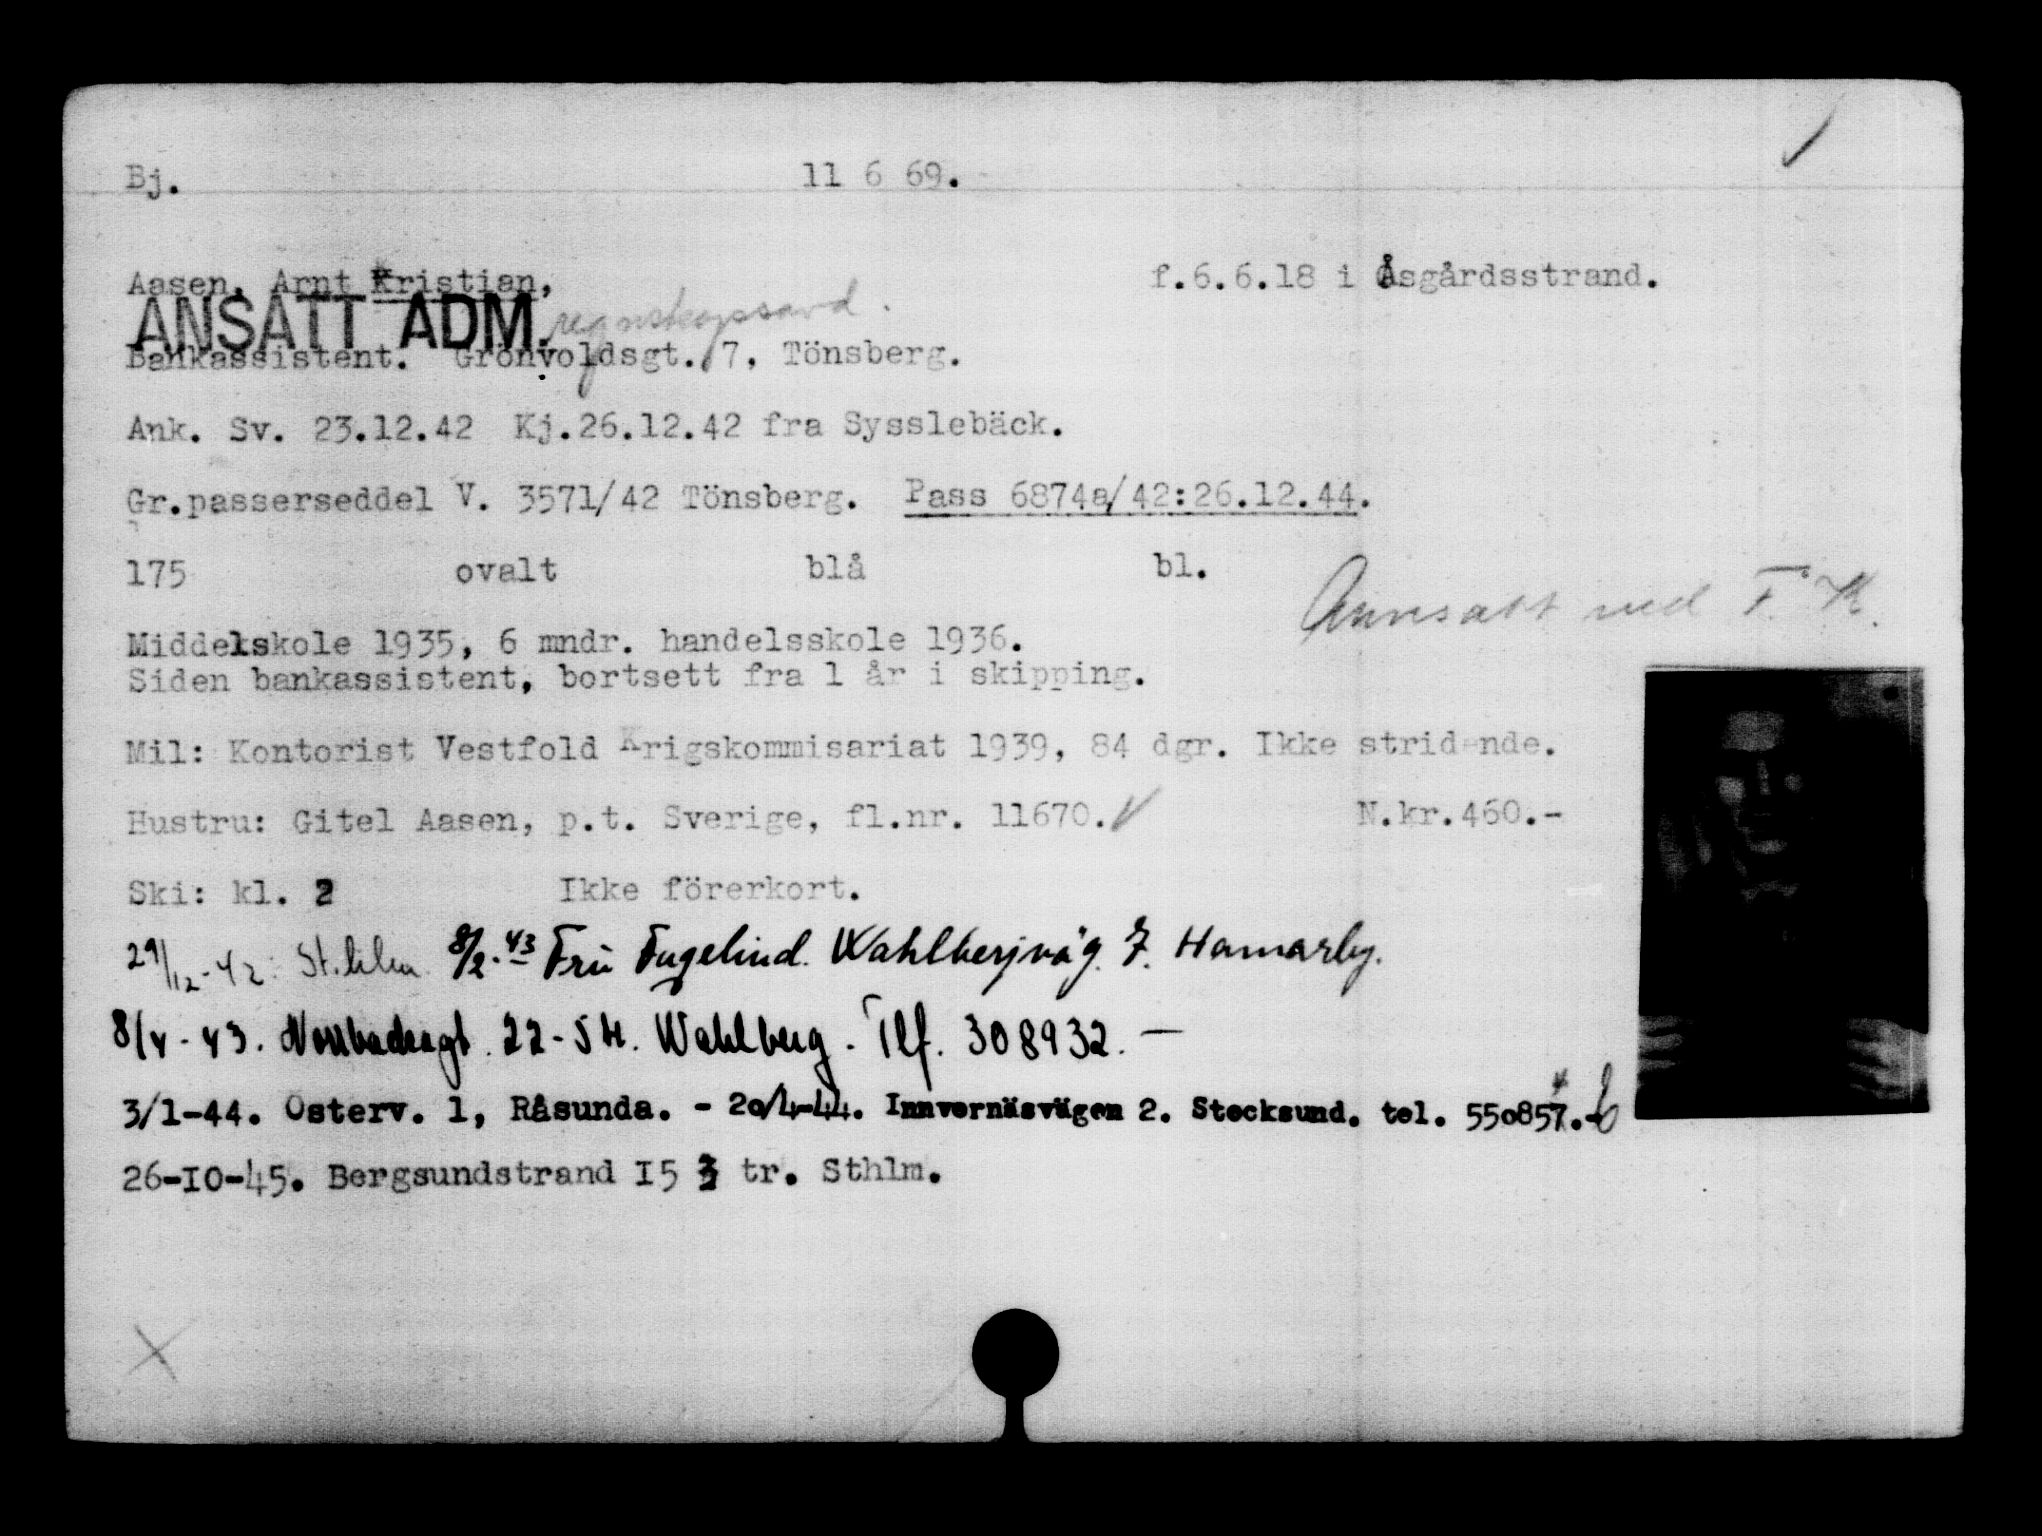 Bj. 11 6 69.
Aasen, Arnt Kristian, f.6.6.18 i Åsgårdsstrand.
ANSATT ADM. regnskapsavd.
Bankassistent. Grönvoldsgt. 7, Tönsberg.
Ank. Sv. 23.12.42 Kj.26.12.42 fra Sysslebäck.
Gr.passerseddel V. 3571/42 Tönsberg. Pass 6874a/42:26.12.44.
175 ovalt blå bl.
Annsatt ved F. K.
Middelskole 1935, 6 mndr. handelsskole 1936.
Siden bankassistent, bortsett fra 1 år i skipping.
Mil: Kontorist Vestfold Krigskommisariat 1939, 84 dgr. Ikke stridende.
Hustru: Gitel Aasen, p.t. Sverige, fl.nr. 11670. N.kr.460.-
Ski: kl. 2 Ikke förerkort.
29/12-42: 8/2-43 Fru Wahlbergväg. 7. Hamarby.
8/4-43. 22-5 Wahlberg. Tlf. 308932. —
3/1-44. Österv. 1, Råsunda. - 20/4-44. Innvernäsvägen 2. Stocksund. tel. 550857.-
26-10-45. Bergsundstrand I5 3 tr. Sthlm.